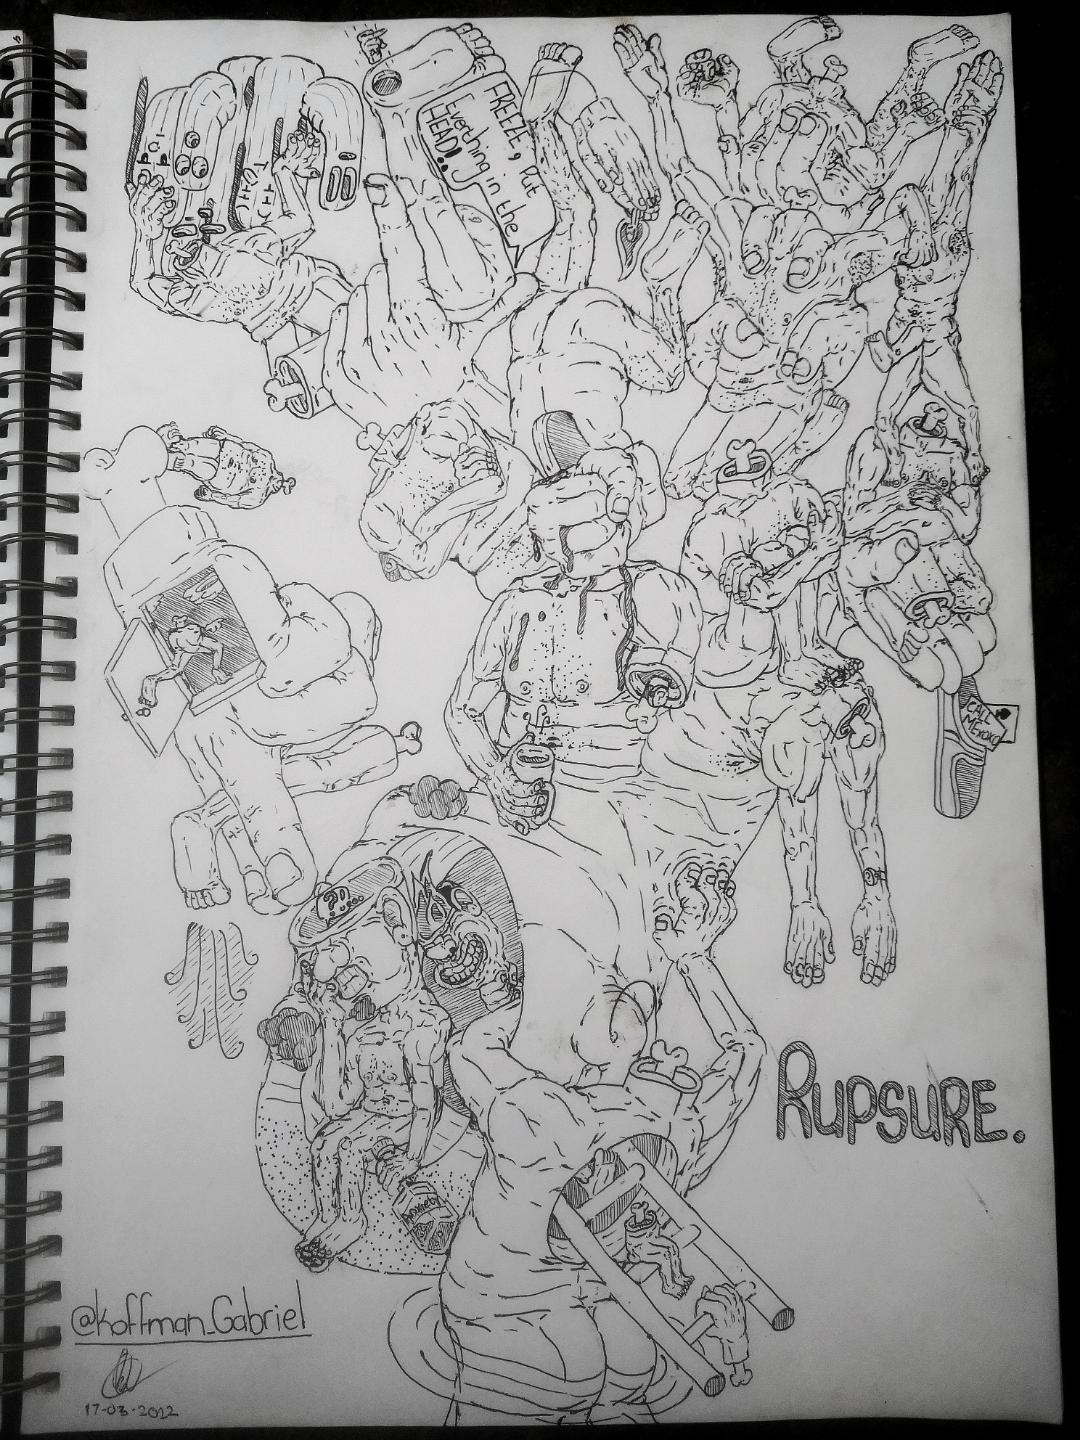 FREEZE, Put
Everthing in the
HEAD!!
CALL
ME
Anxiety
RUPSURE.
@koffman_Gabriel
17-03-2022